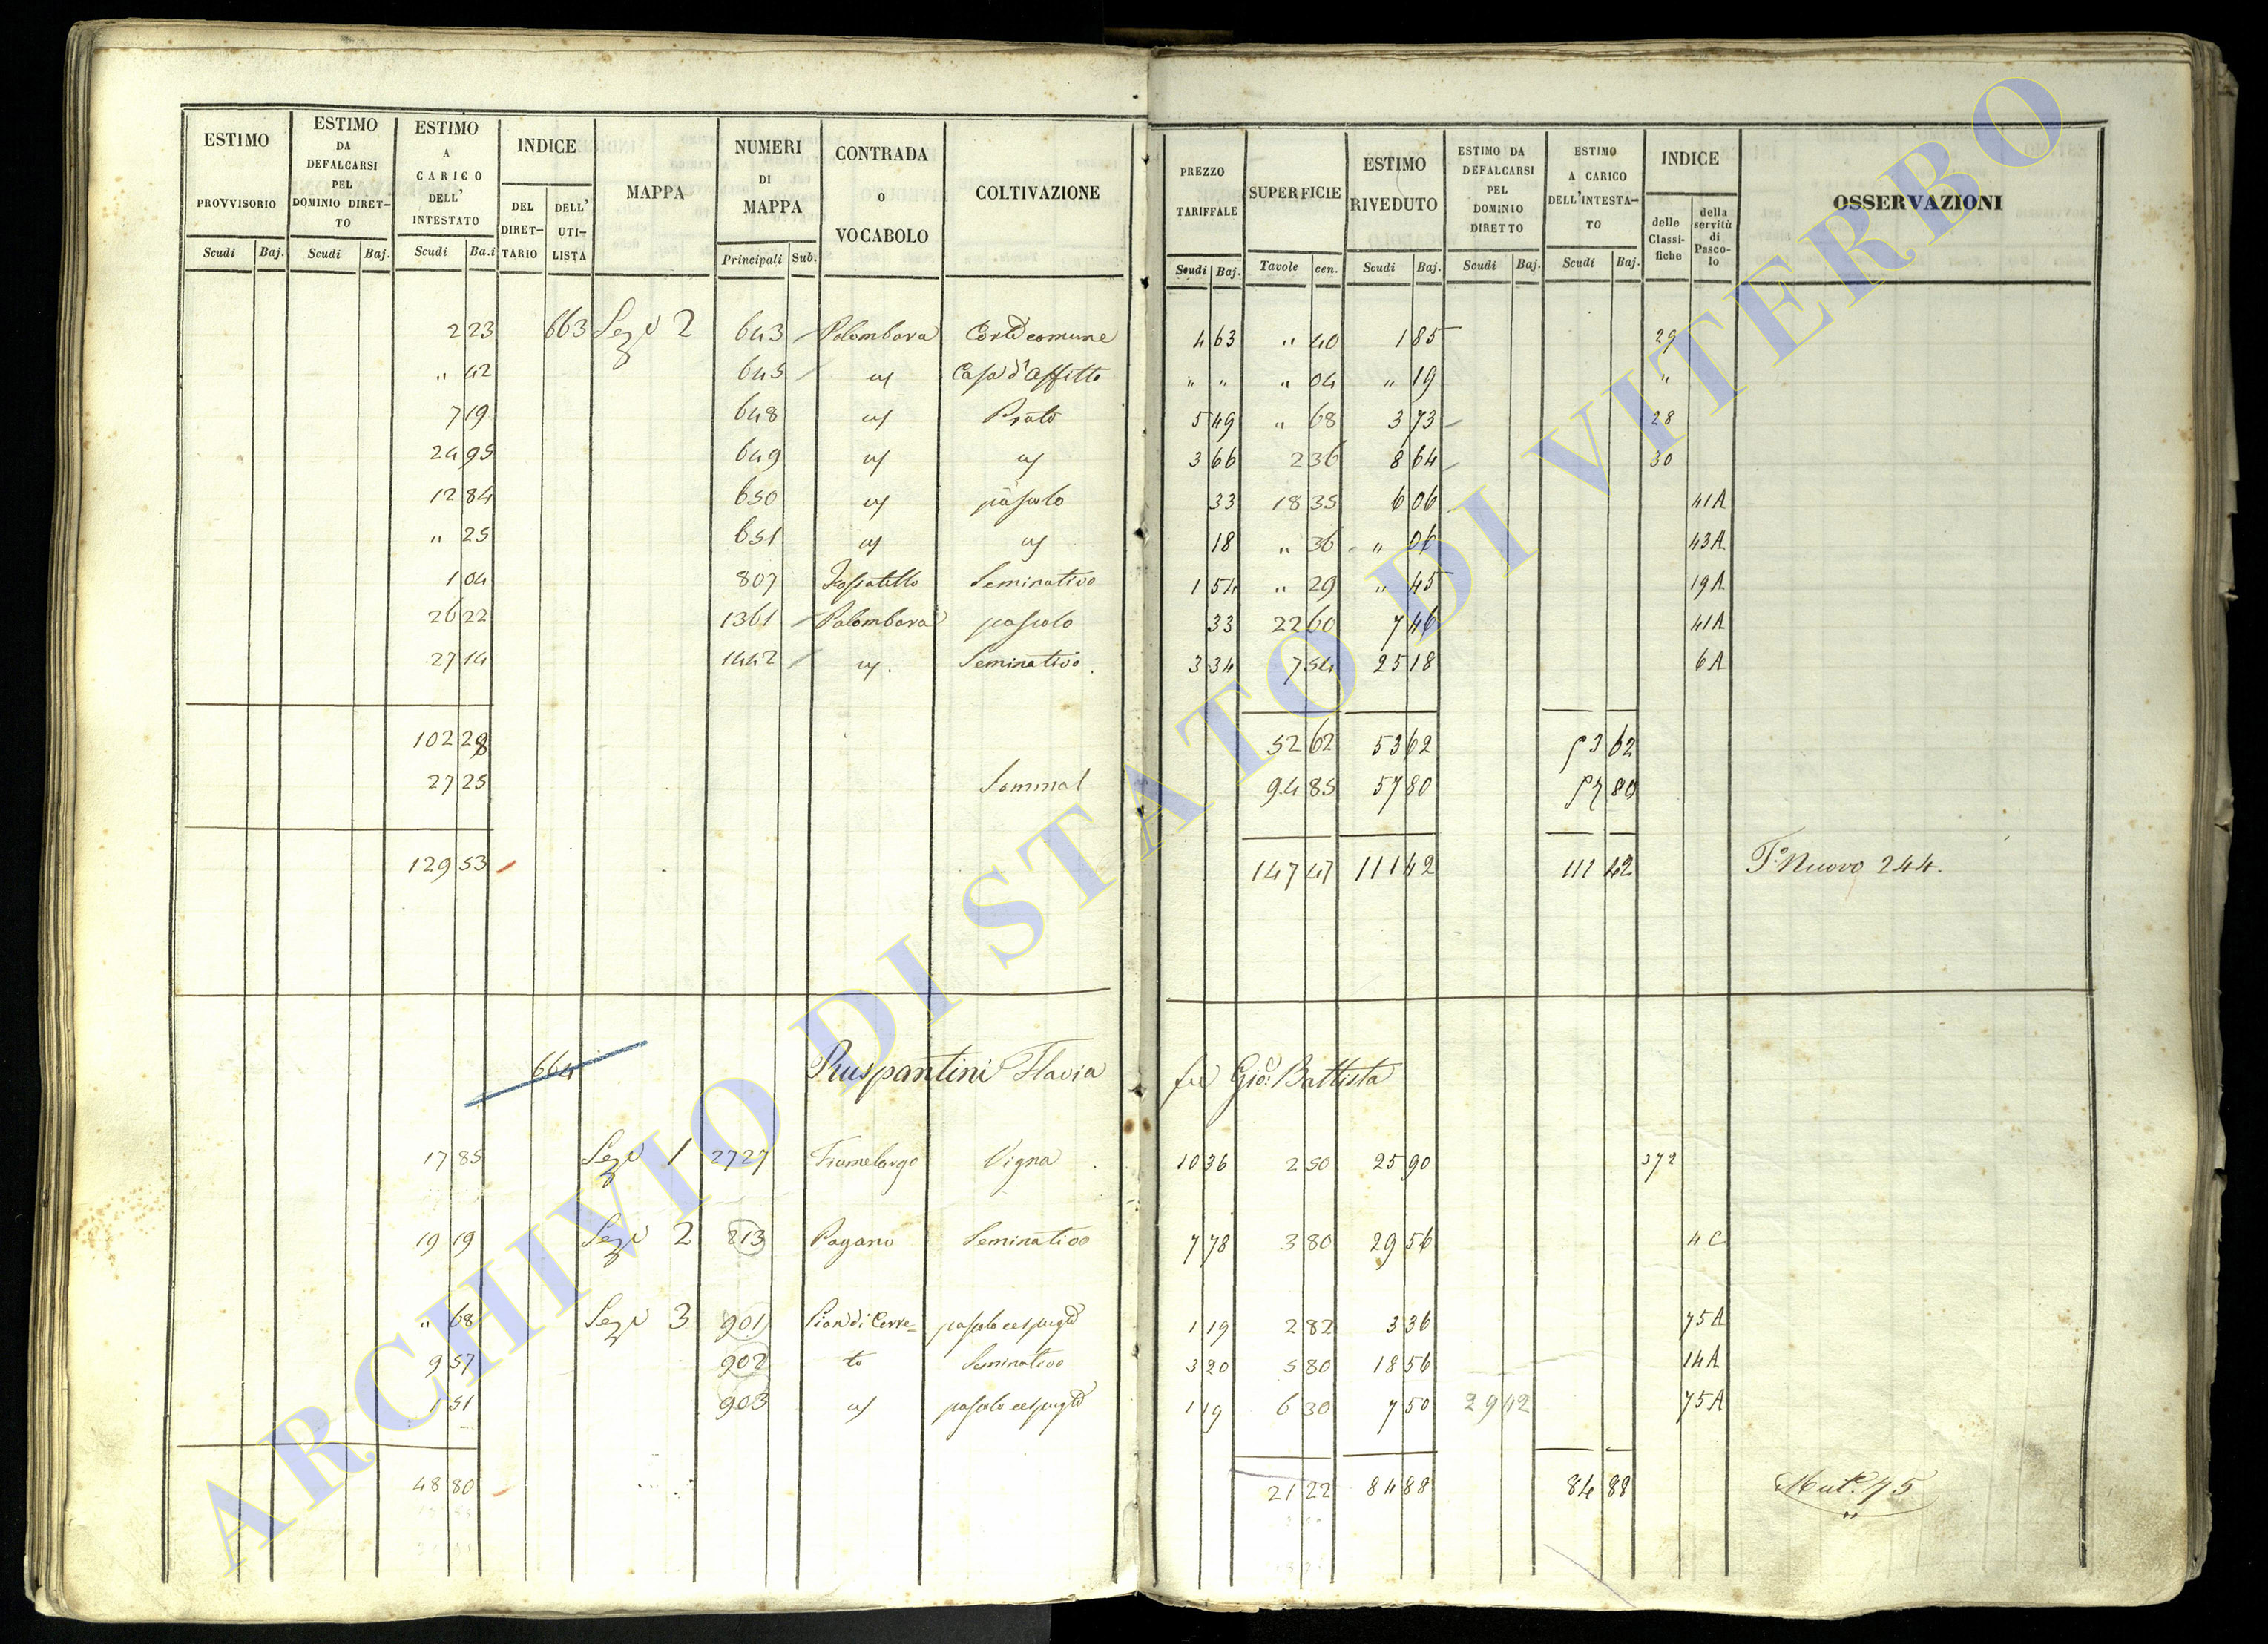 ESTIMO PROVVISORIO Scudi Baj.
ESTIMO DA DEFALCARSI PEL DOMINIO DIRET-TO Scudi Baj.
ESTIMO A CARICO DELL' INTESTATO Scudi Ba.i
INDICE DEL DIRET-TARIO DELL' UTI-LISTA
MAPPA
NUMERI DI MAPPA Principali Sub.
CONTRADA o VOCABOLO
COLTIVAZIONE
PREZZO TARIFFALE Scudi Baj.
SUPERFICIE Tavole cen.
ESTIMO RIVEDUTO Scudi Baj.
ESTIMO DA DEFALCARSI PEL DOMINIO DIRETTO Scudi Baj.
ESTIMO A CARICO DELL'INTESTA-TO Scudi Baj.
INDICE delle Classi-fiche della servitù di Pasco-lo
OSSERVAZIONI
2 23 663 Sez. 2 643 Palombara Corte comune 4 63 " 40 1 85 29
" 42 645 " Casa d'affitto " " " 04 " 19 "
7 19 648 " Prato 5 49 " 68 3 73 28
24 95 649 " " 3 66 2 36 8 64 30
12 84 650 " pascolo 33 18 35 6 06 41A
" 25 651 " " 18 " 36 " 06 43A
1 04 807 Fossatello Seminativo 1 54 " 29 " 45 19A
26 22 1361 Palombara pascolo 33 22 60 7 46 41A
27 14 1442 " Seminativo 3 34 7 54 25 18 6A
102 28 52 62 53 62 53 62
27 25 94 85 57 80 57 80
129 53 147 47 111 42 111 42 T. Nuovo 244.
664 Ruspantini Flavia fu Gio: Battista
17 85 Sez. 1 2727 Fiumelargo Vigna 10 36 2 50 25 90 372
19 19 Sez. 2 213 Pagano Seminativo 7 78 3 80 29 56 4C
" 68 Sez. 3 901 Pian di Cerre= pascolo cespugto 1 19 2 82 3 36 75A
9 57 902 to Seminativo 3 20 5 80 18 56 14A
1 51 903 " pascolo cespugto 1 19 6 30 7 50 29 42 75A
48 80 21 22 84 88 84 88 75
ARCHIVIO DI STATO DI VITERBO